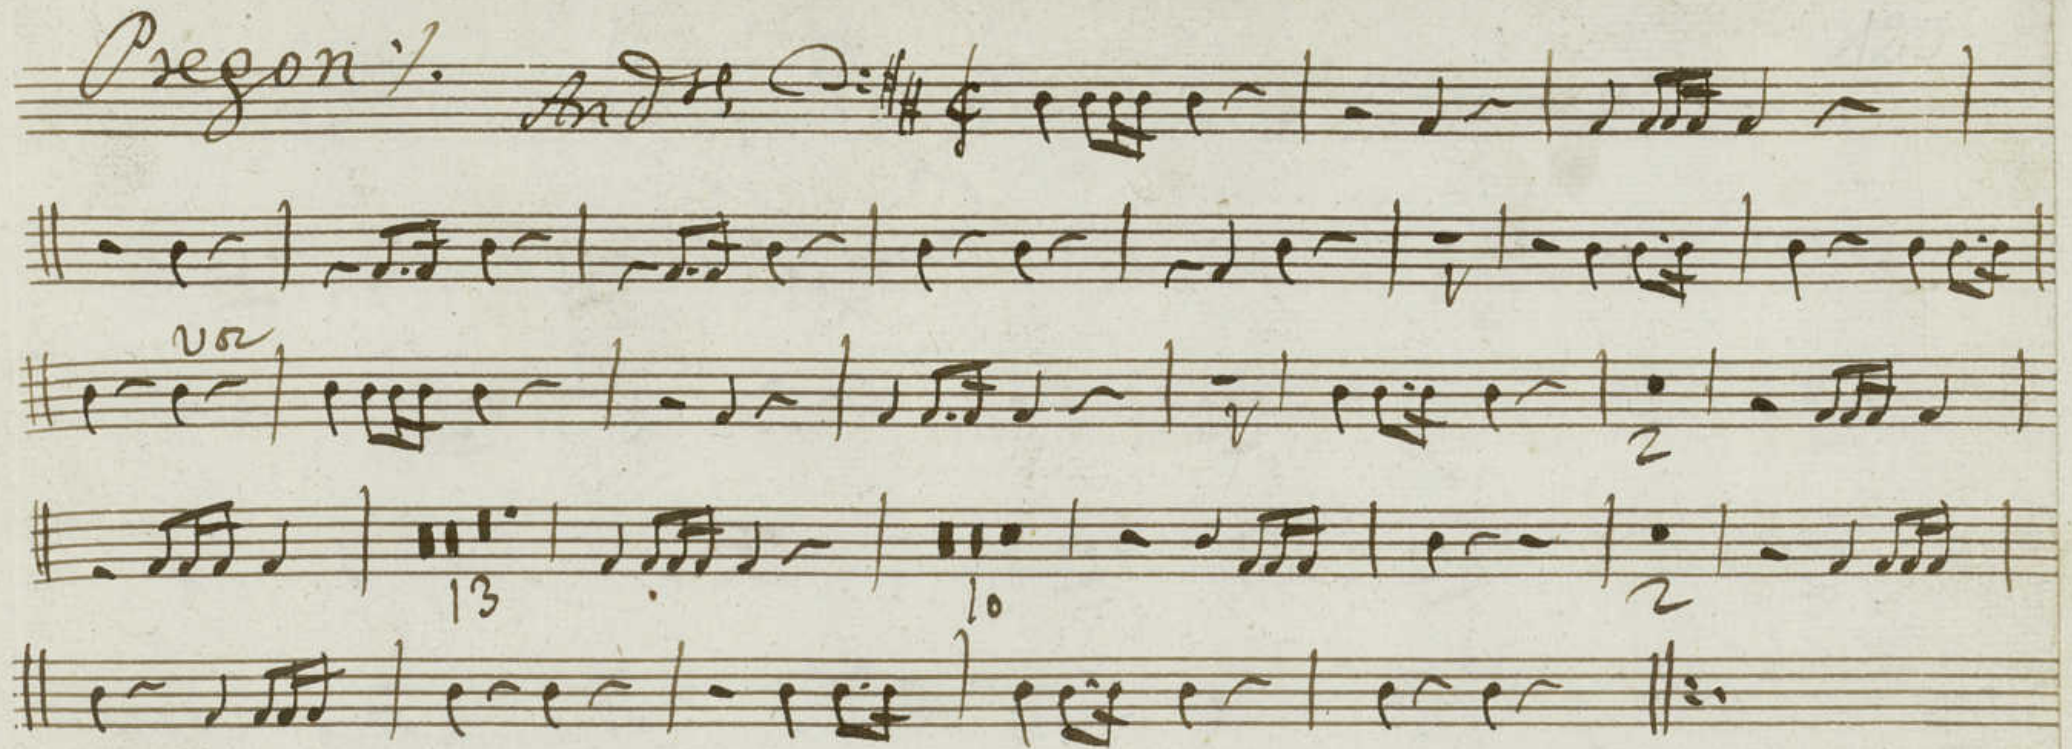 Pregon ·/.
And.te
voz
2
13
10
2